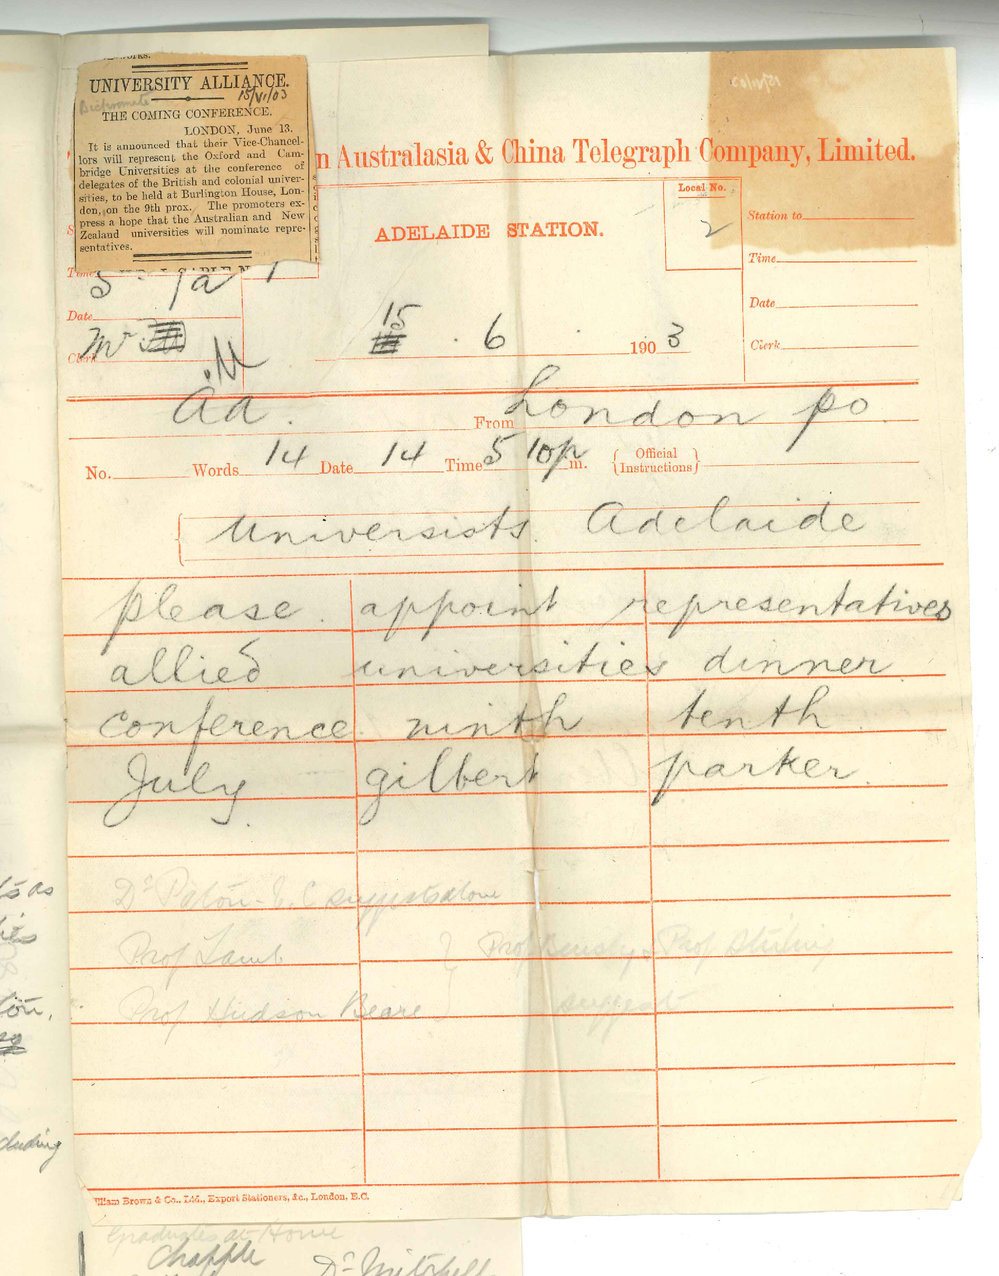 UNIVERSITY ALLIANCE.
15/VI/03
THE COMING CONFERENCE.
LONDON, June 13.
It is announced that their Vice-Chancel-
lors will represent the Oxford and Cam-
bridge Universities at the conference of
delegates of the British and colonial univer-
sities, to be held at Burlington House, Lon-
don, on the 9th prox. The promoters ex-
press a hope that the Australian and New
Zealand universities will nominate repre-
sentatives.
n Australasia & China Telegraph Company, Limited.
ADELAIDE STATION.
Local No.
2
Station to
Time
Date
Clerk
Time
Date
Clerk
15 . 6 . 1903
Aa. From London po
No. Words 14 Date 14 Time 5 10p m. { Official Instructions }
Universists. Adelaide
please. appoint representatives
allied universities dinner
conference ninth tenth
July gilbert parker.
Prof Lamb
Prof Hudson Beare
Prof Bensly & Prof Stirling
suggest
lliam Brown & Co., Ltd., Export Stationers, &c., London, E.C.
Graduates at Home
Chapple Dr Mitchell